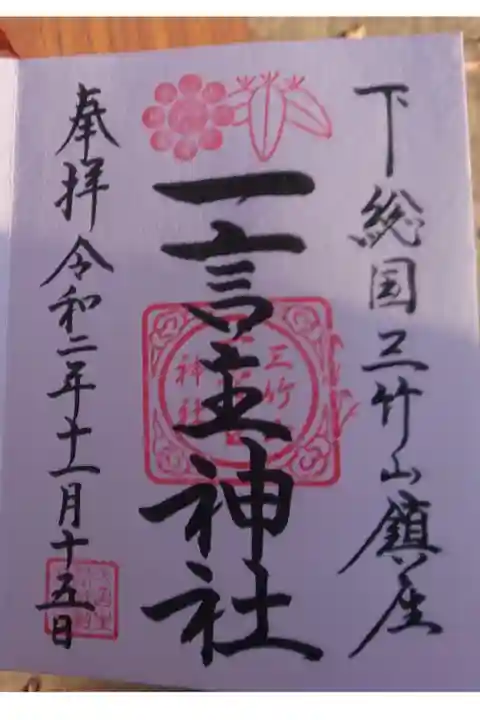 下総国三竹山鎮座
一言主神社
奉拝 令和二年十一月十五日